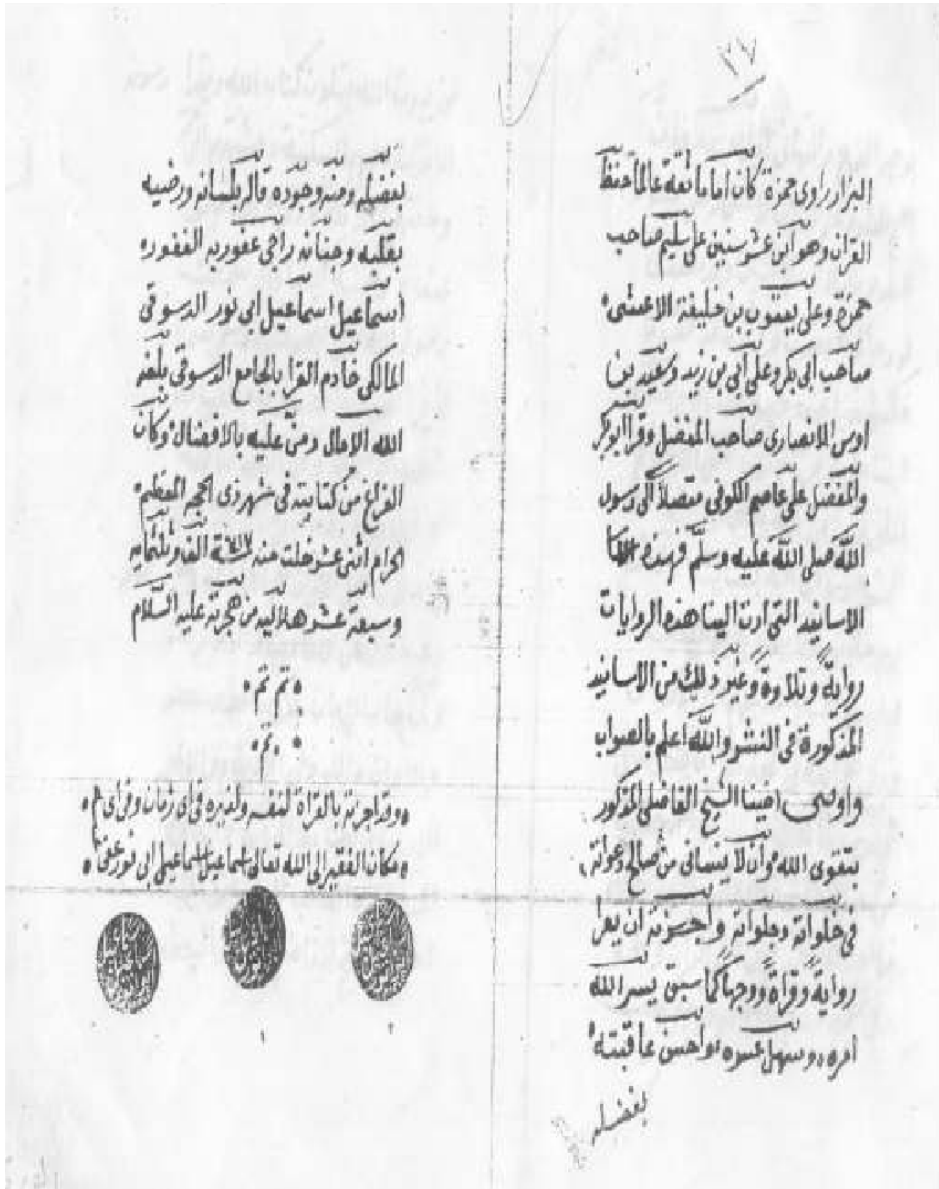 ٢٧
البزار راوى حمزة كان اماما ثقة عالما حفظ
القران وهو ابن عشر سنين على سليم صاحب
حمزة وعلى يعقوب بن خليفة الاعشى
صاحب ابى بكر وعلى أبي بن زيد وسعيد بن
اوس الانصارى صاحب المفضل وقرأ ابوبكر
والمفضل على عاصم الكوفى متصلا الى رسول
اللّه صلى اللّه عليه وسلّم فهذه
الاسانيد التى ادت الينا هذه الروايات
رواية وتلاوة وغير ذلك من الاسانيد
المذكورة فى النشر واللّه أعلم بالصواب
واوصى اخينا الشيخ الفاضل المذكور
بتقوى الله وأن لا ينسانى من صالح دعواته
فى خلواته وجلواته وأجزته ان يقرا
رواية وقراة ووجها كما سبق يسر الله
امره وسهل عسره واحسن عاقبته
بفضله
بفضله ومنه وجوده قاله بلسانه ورضيه
بقلبه وجنانه راجى عفو ربه الغفور
اسماعيل اسماعيل ابى نور الدسوقى
المالكى خادم القرا بالجامع الدسوقى بلغه
الله الامال ومنّ عليه بالافضال وكان
الفراغ من كتابته فى شهر ذى الحجه المعظم
الحرام اثنى عشر خلت منه ١٣١٧ سنة الف وثلثمايه
وسبعة عشر هلاليه من هجرته عليه السّلام
تم تم
تم
وقد اجزته بالقراة لنفسه ولغيره فى اى زمان وفى اى
مكان الفقير الى الله تعالى اسماعيل اسماعيل ابى نور عفى